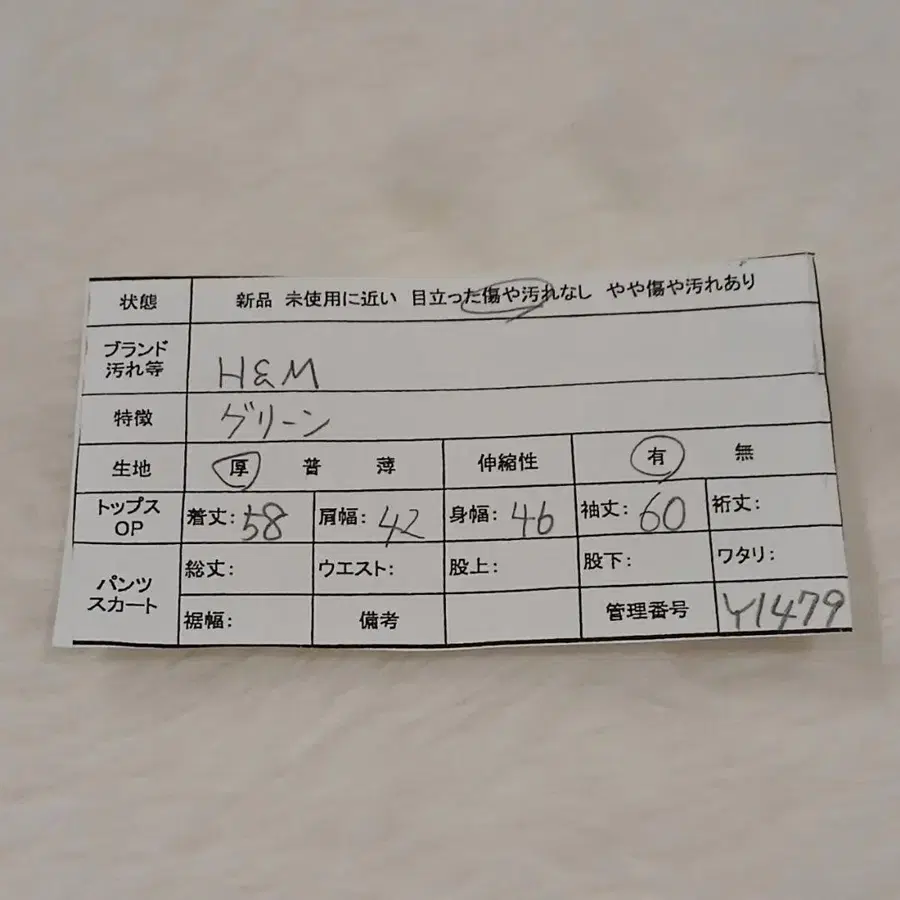 状態 新品 未使用に近い 目立った傷や汚れなし やや傷や汚れあり
ブランド
汚れ等 H&M
特徴 グリーン
生地 厚 普 薄 伸縮性 有 無
トップス
OP 着丈:58 肩幅:42 身幅:46 袖丈:60 裄丈:
パンツ
スカート 総丈: ウエスト: 股上: 股下: ワタリ:
裾幅: 備考 管理番号 Y1479